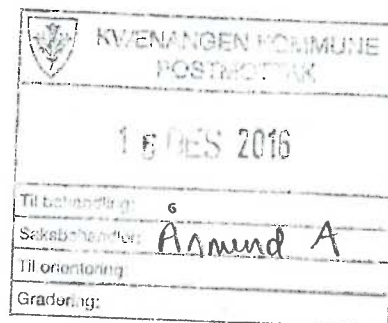 KVÆNANGEN KOMMUNE
POSTMOTTAK
16 DES 2016
Til behandling:
6
Saksbehandler: Åsmund A
Til orientering:
Gradering: